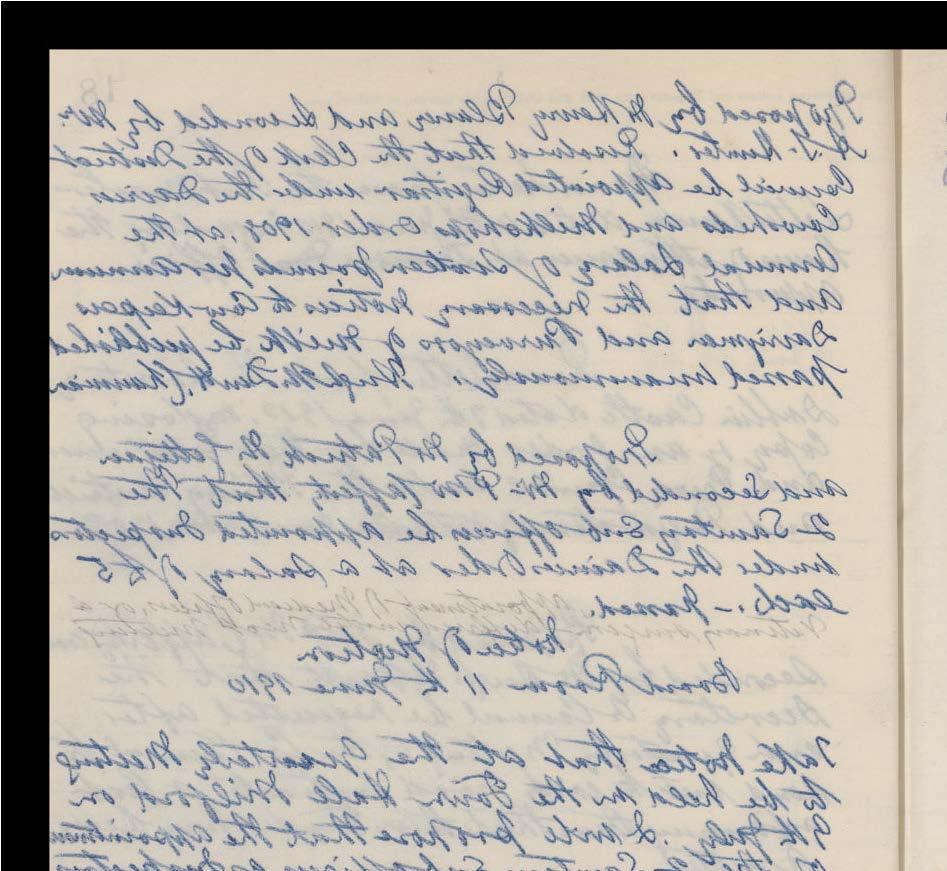 Proposed by Mr Henry Blaney and Seconded by Mr.
A. J. Hunter. Resolved that the Clerk of the District
Council be appointed Registrar under the Dairies
Cowsheds and Milkshops Order 1908. at the
Annual Salary of Sixteen pounds per annum
And that the necessary Notices to Cow Keepers
Dairymen and Purveyors of Milk be published
passed unanimously.
Proposed by Mr Patrick Mc
and Seconded by Mr that the
2 Sanitary Sub Officers be appointed Inspectors
under the Dairies Order at a Salary of £5
each. - passed.
appointment of Medical Officer, of a
Veterinary Surgeon
Notice of Motion
Board Room 11th June 1910
Take Notice that at the Quarterly Meeting
to be held in the Town Hall Milford on
9th July. I will propose that the appointment
of the 2 Sanitary Sub Officers as Inspectors